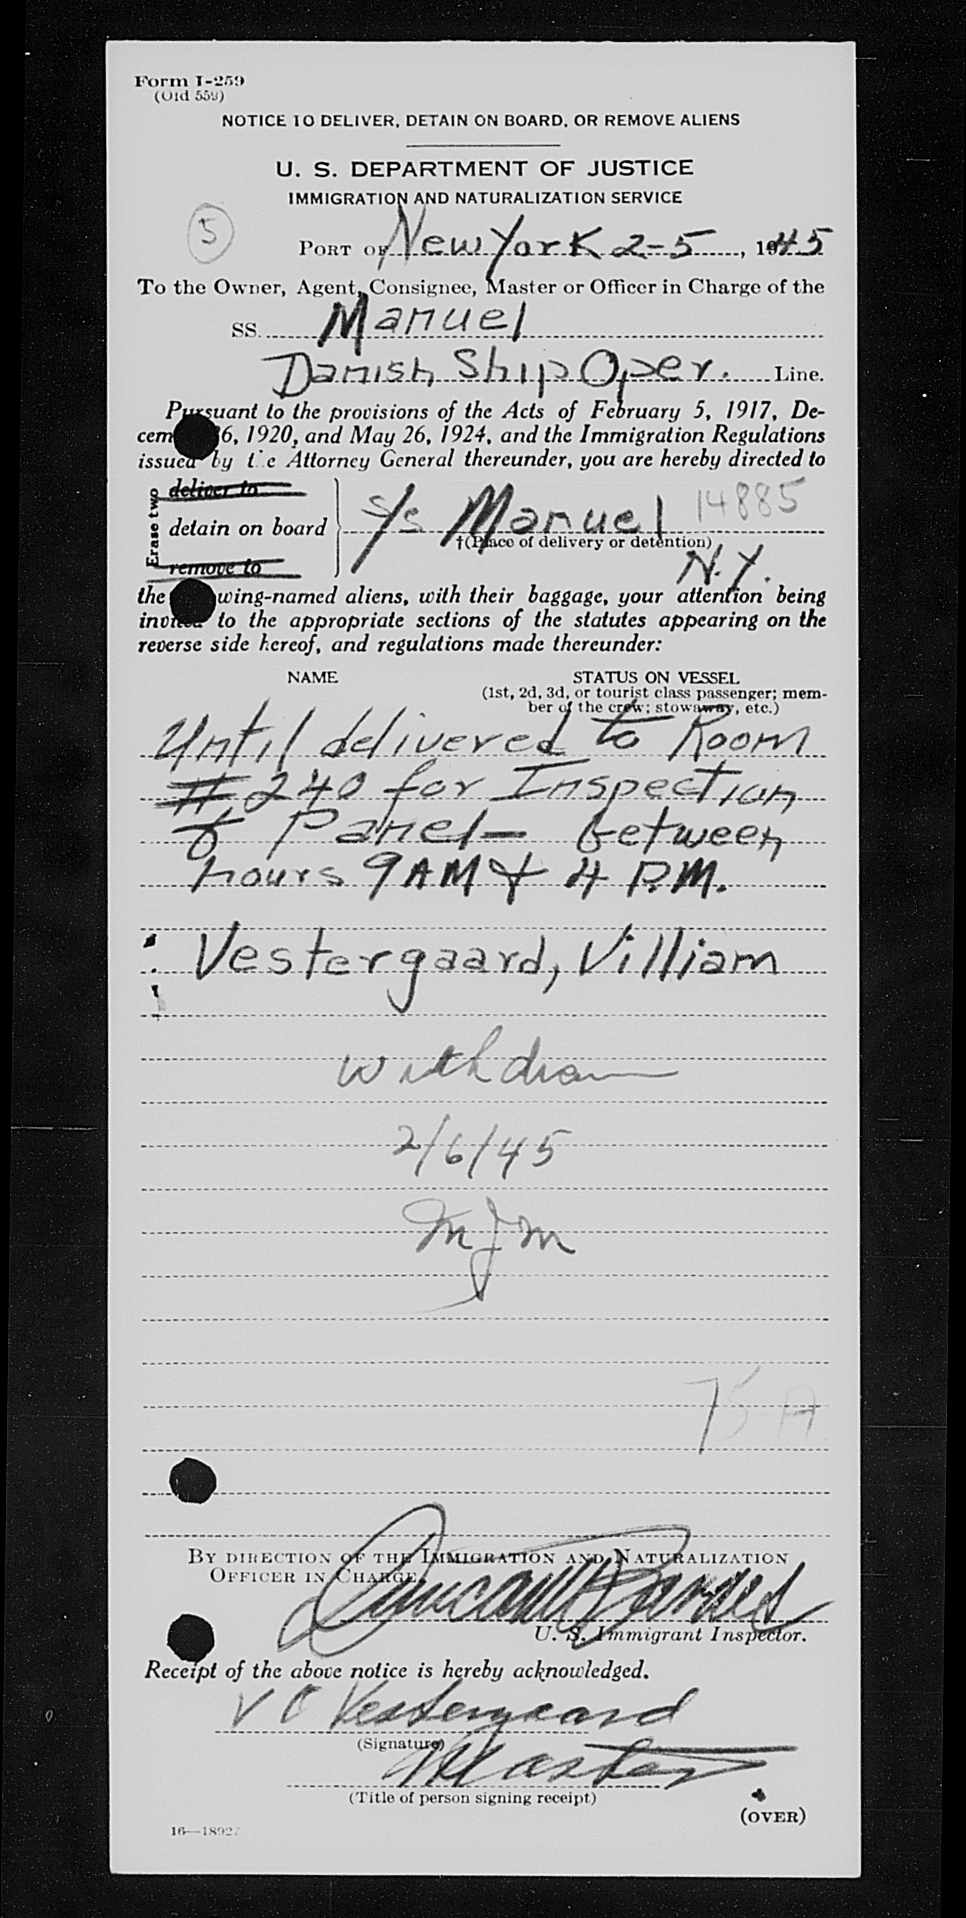 Form I-259
(Old 559)
NOTICE TO DELIVER, DETAIN ON BOARD, OR REMOVE ALIENS
U. S. DEPARTMENT OF JUSTICE
IMMIGRATION AND NATURALIZATION SERVICE
5
PORT OF New York 2-5, 1945
To the Owner, Agent, Consignee, Master or Officer in Charge of the
SS. Manuel
Danish Ship Oper. Line.
Pursuant to the provisions of the Acts of February 5, 1917, De-
cem 6, 1920, and May 26, 1924, and the Immigration Regulations
issued by the Attorney General thereunder, you are hereby directed to
Erase two
deliver to
detain on board s/s Manuel 14885
†(Place of delivery or detention)
remove to N.Y.
the wing-named aliens, with their baggage, your attention being
invited to the appropriate sections of the statutes appearing on the
reverse side hereof, and regulations made thereunder:
NAME STATUS ON VESSEL
(1st, 2d, 3d, or tourist class passenger; mem-
ber of the crew; stowaway, etc.)
Until delivered to Room
# 240 for Inspection
& Panel - between
hours 9 AM & 4 P.M.
Vestergaard, Villiam
withdrawn
2/6/45
MJM
75-A
BY DIRECTION OF THE IMMIGRATION AND NATURALIZATION
OFFICER IN CHARGE.
U. S. Immigrant Inspector.
Receipt of the above notice is hereby acknowledged.
V O Vestergaard
(Signature)
Master
(Title of person signing receipt)
(OVER)
16—18927